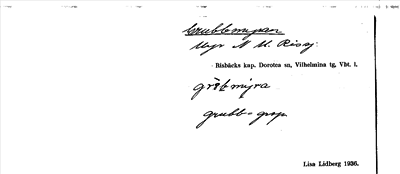 Grubbmyran
Myr N U. Rissj.
Risbäcks kap. Dorotea sn, Vilhelmina tg, Vbt. l.
grubb = grop
Lisa Lidberg 1936.